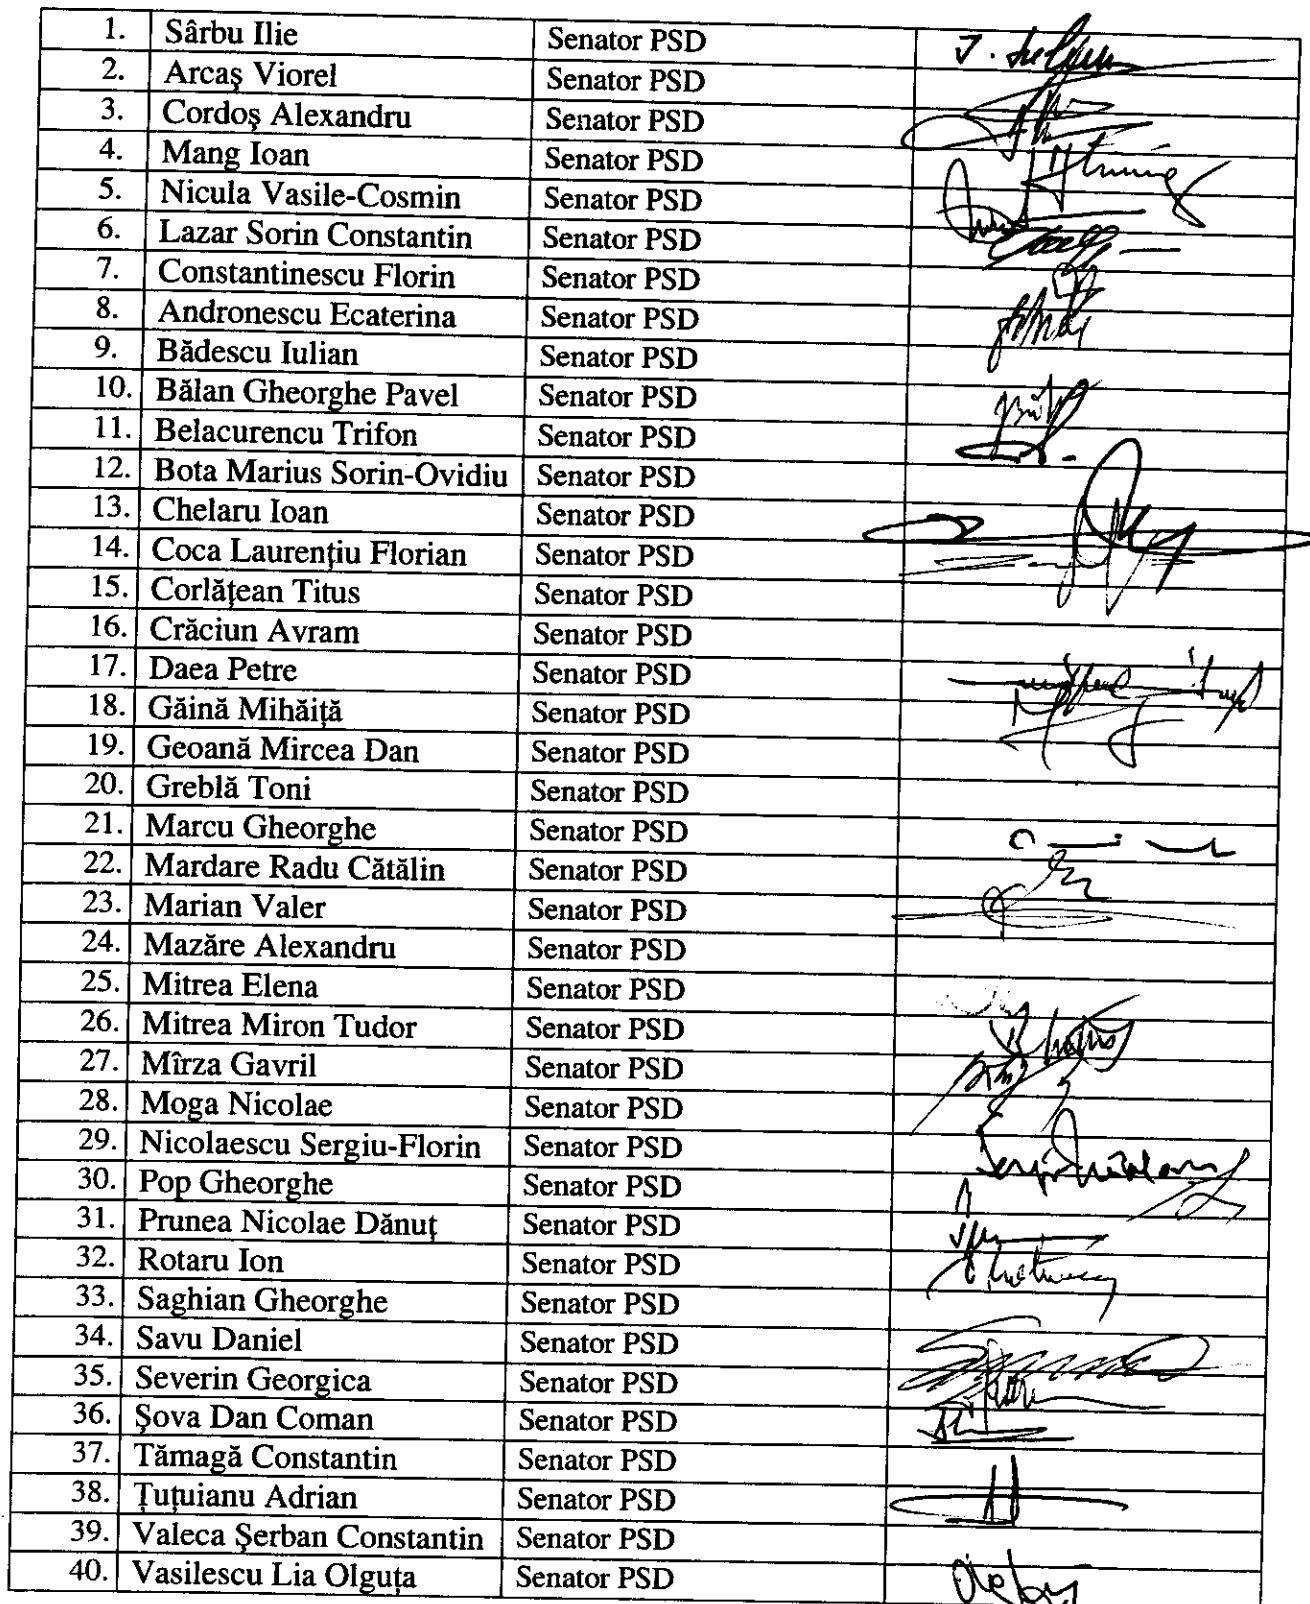 1. Sârbu Ilie Senator PSD
2. Arcaş Viorel Senator PSD
3. Cordoş Alexandru Senator PSD
4. Mang Ioan Senator PSD
5. Nicula Vasile-Cosmin Senator PSD
6. Lazar Sorin Constantin Senator PSD
7. Constantinescu Florin Senator PSD
8. Andronescu Ecaterina Senator PSD
9. Bădescu Iulian Senator PSD
10. Bălan Gheorghe Pavel Senator PSD
11. Belacurencu Trifon Senator PSD
12. Bota Marius Sorin-Ovidiu Senator PSD
13. Chelaru Ioan Senator PSD
14. Coca Laurenţiu Florian Senator PSD
15. Corlăţean Titus Senator PSD
16. Crăciun Avram Senator PSD
17. Daea Petre Senator PSD
18. Găină Mihăiţă Senator PSD
19. Geoană Mircea Dan Senator PSD
20. Greblă Toni Senator PSD
21. Marcu Gheorghe Senator PSD
22. Mardare Radu Cătălin Senator PSD
23. Marian Valer Senator PSD
24. Mazăre Alexandru Senator PSD
25. Mitrea Elena Senator PSD
26. Mitrea Miron Tudor Senator PSD
27. Mîrza Gavril Senator PSD
28. Moga Nicolae Senator PSD
29. Nicolaescu Sergiu-Florin Senator PSD
30. Pop Gheorghe Senator PSD
31. Prunea Nicolae Dănuţ Senator PSD
32. Rotaru Ion Senator PSD
33. Saghian Gheorghe Senator PSD
34. Savu Daniel Senator PSD
35. Severin Georgica Senator PSD
36. Şova Dan Coman Senator PSD
37. Tămagă Constantin Senator PSD
38. Ţuţuianu Adrian Senator PSD
39. Valeca Şerban Constantin Senator PSD
40. Vasilescu Lia Olguţa Senator PSD